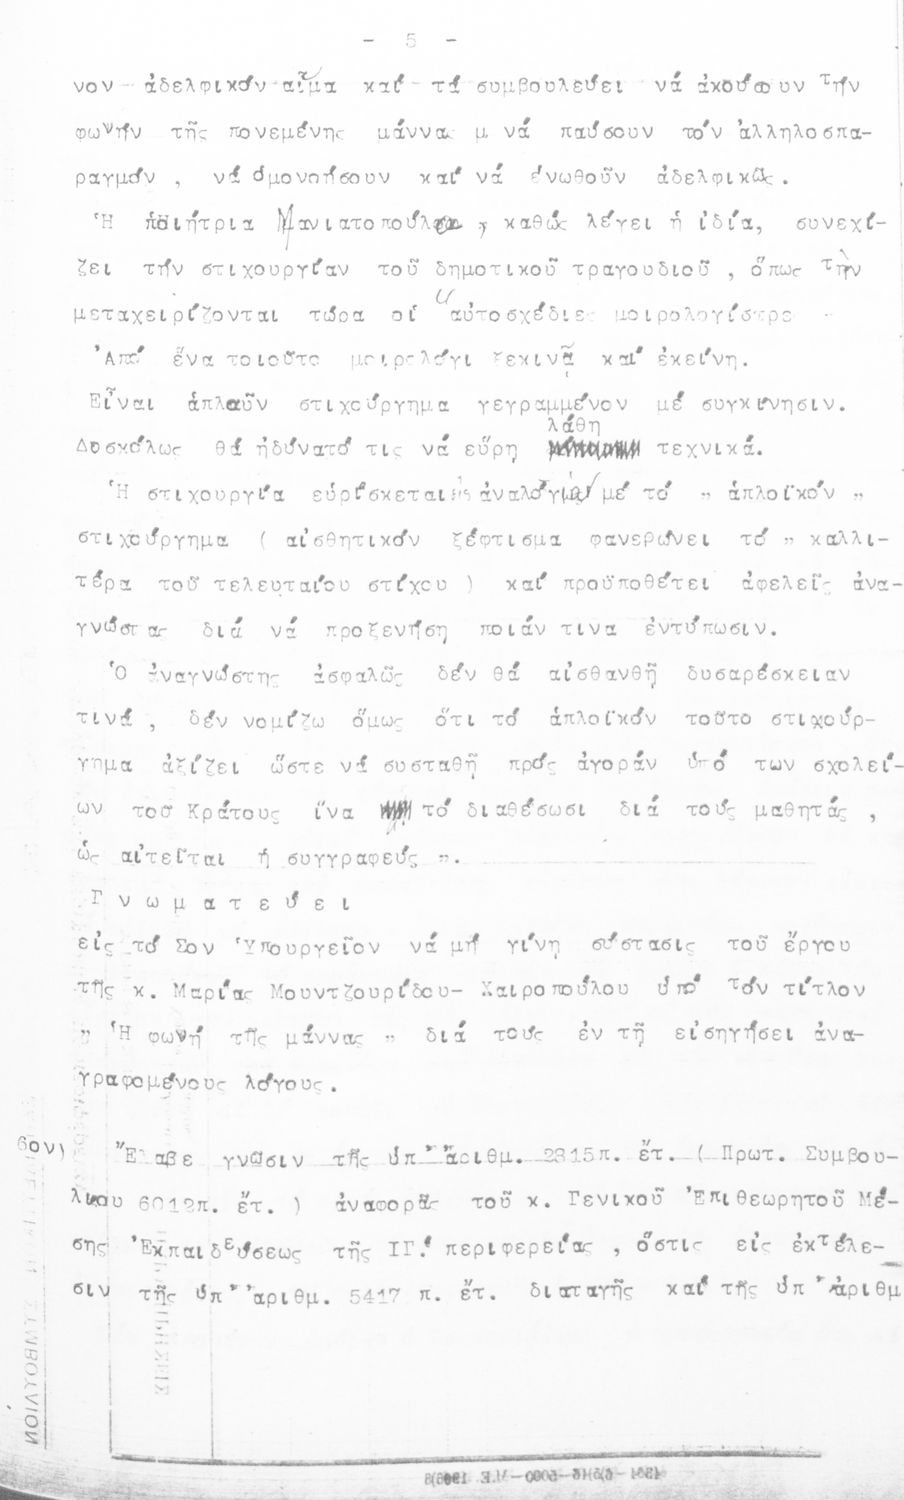 - 5 -
νον ἀδελφικόν αἷμα καί τά συμβουλεύει νά ἀκούσουν τήν
φωνήν τῆς πονεμένης μάννας νά παύσουν τόν ἀλληλοσπα-
ραγμόν , νά ὁμονοήσουν καί νά ἑνωθοῦν ἀδελφικῶς.
Ἡ ποιήτρια Μανιατοπούλου , καθώς λέγει ἡ ἰδία, συνεχί-
ζει τήν στιχουργίαν τοῦ δημοτικοῦ τραγουδιοῦ , ὅπως τήν
μεταχειρίζονται τώρα οἱ αὐτοσχέδιες μοιρολογίστρες
Ἀπό ἕνα τοιοῦτο μοιρολόγι ξεκινᾶ καί ἐκείνη.
Εἶναι ἁπλοῦν στιχούργημα γεγραμμένον μέ συγκίνησιν.
λάθη
Δυσκόλως θά ἠδύνατό τις νά εὕρῃ τεχνικά.
Ἡ στιχουργία εὑρίσκεται ἀναλόγως μέ τό " ἁπλοϊκόν "
στιχούργημα ( αἰσθητικόν ξέφτισμα φανερώνει τό " καλλι-
τέρα τοῦ τελευταίου στίχου ) καί προϋποθέτει ἀφελεῖς ἀνα-
γνώστας διά νά προξενήσῃ ποιάν τινα ἐντύπωσιν.
Ὁ ἀναγνώστης ἀσφαλῶς δέν θά αἰσθανθῇ δυσαρέσκειαν
τινά , δέν νομίζω ὅμως ὅτι τό ἁπλοϊκόν τοῦτο στιχούρ-
γημα ἀξίζει ὥστε νά συσταθῇ πρός ἀγοράν ὑπό των σχολεί-
ων τοῦ Κράτους ἵνα τό διαθέσωσι διά τούς μαθητάς ,
ὡς αἰτεῖται ἡ συγγραφεύς ".
Γ ν ω μ α τ ε ύ ε ι
εἰς τό Σον Ὑπουργεῖον νά μή γίνῃ σύστασις τοῦ ἔργου
τῆς κ. Μαρίας Μουντζουρίδου- Χαιροπούλου ὑπό τόν τίτλον
" Ἡ φωνή τῆς μάννας " διά τούς ἐν τῇ εἰσηγήσει ἀνα-
γραφομένους λόγους.
6ον) Ἔλαβε γνῶσιν τῆς ὑπ' ἀριθμ. 2315π. ἔτ. ( Πρωτ. Συμβου-
λίου 6012π. ἔτ. ) ἀναφορᾶς τοῦ κ. Γενικοῦ Ἐπιθεωρητοῦ Μέ-
σης Ἐκπαιδεύσεως τῆς ΙΓ'. περιφερείας , ὅστις εἰς ἐκτέλε-
σιν τῆς ὑπ' ἀριθμ. 5417 π. ἔτ. διαταγῆς καί τῆς ὑπ' ἀριθμ